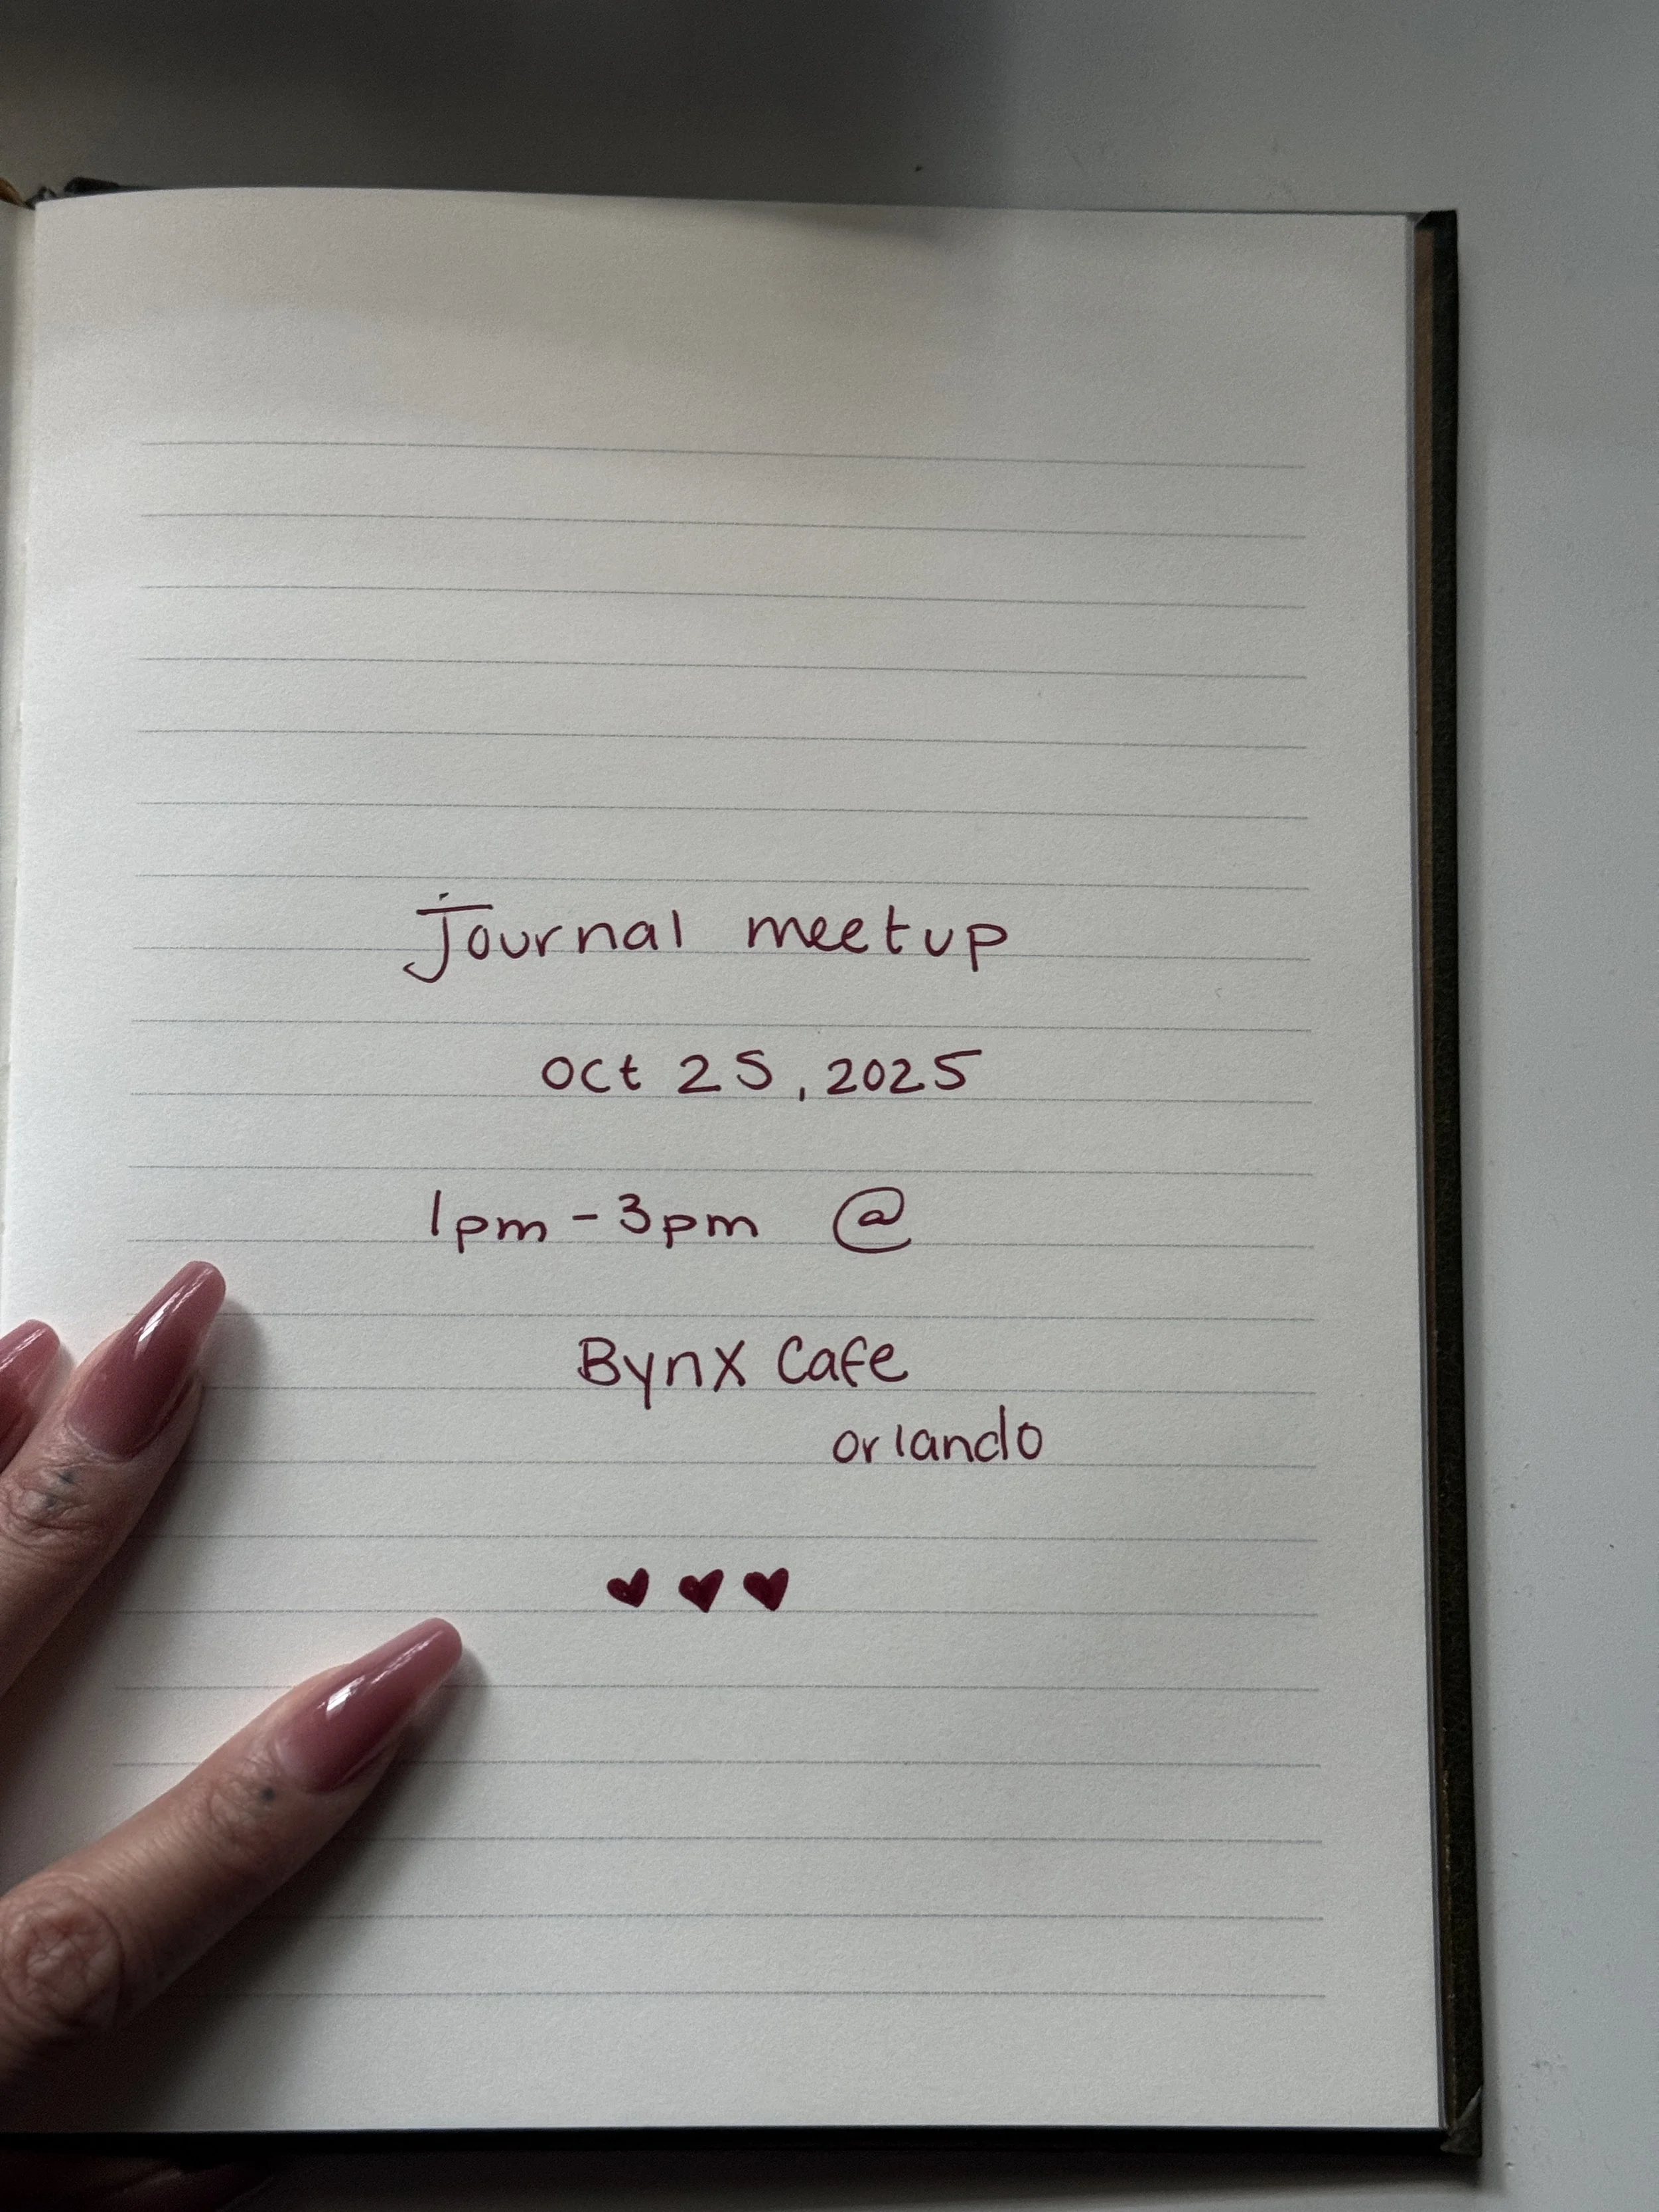 Journal meetup
oct 25, 2025
1pm - 3pm @
Bynx Cafe
orlando
♥ ♥ ♥